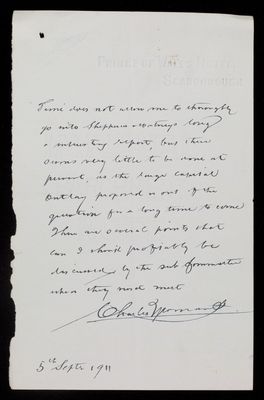 PRINCE OF WALES HOTEL,
SCARBOROUGH.
Time does not allow me to thoroughly
go into Sheppard & Watneys long
& interesting report, but there
seems very little to be done at
present, as the large capital
outlay proposed is out of the
question for a long time to come
There are several points that
can & should profitably be
discussed by the sub Committee
when they next meet
Charles
5th Septr 1911